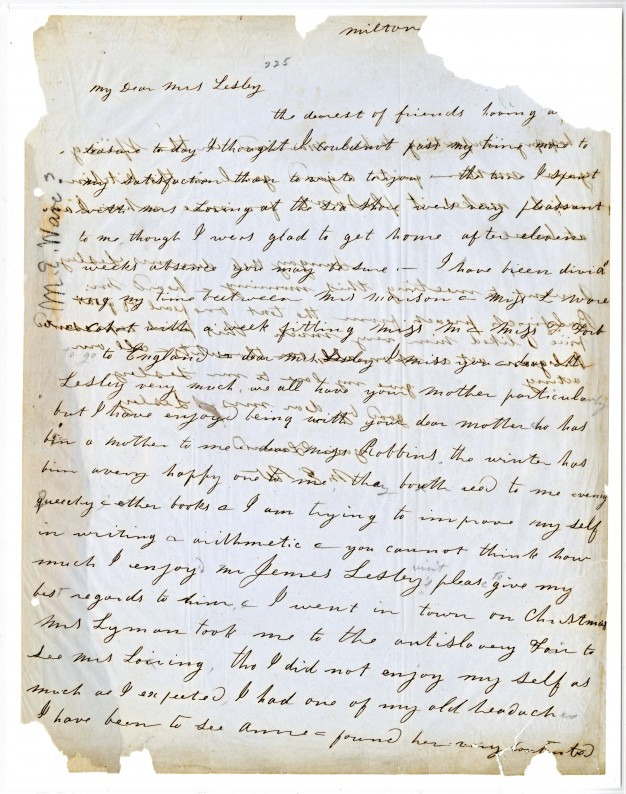 milton
225
my Dear Mrs Lesley
the dearest of friends having a
leasur to day I thought I couldn't pass my time more to
my satisfaction than to write to you the time I spent
with mrs Loring at the sea Shore was very pleasant
to me, though I was glad to get home after eleven
weeks absence you may be sure - I have been divid
ing my time between Mrs Morison & Miss L Ware
with a week fitting miss M & Miss Forb
to go to England dear mrs Lesley I miss you & dear Mr
Lesley very much, we all have your mother particularly
but I have enjoyd being with your dear mother ho has
bin a mother to me & dear miss Robbins, the winter has
bin a very happy one to me, thay bouth read to me evenig
queechy & other books & I am trying to improve my self
in writing & arithmetic & you cannot think how
much I enjoyd mr James Lesley visit pleas to give my
best regards to him, & I went in town on Christmas
Mrs Lyman took me to the antislavery Fair to
see Mrs Loring, tho I did not enjoy my self as
much as I expected, I had one of my old headachs
I have been to see Anne & found her very contented
M. L. Ware?